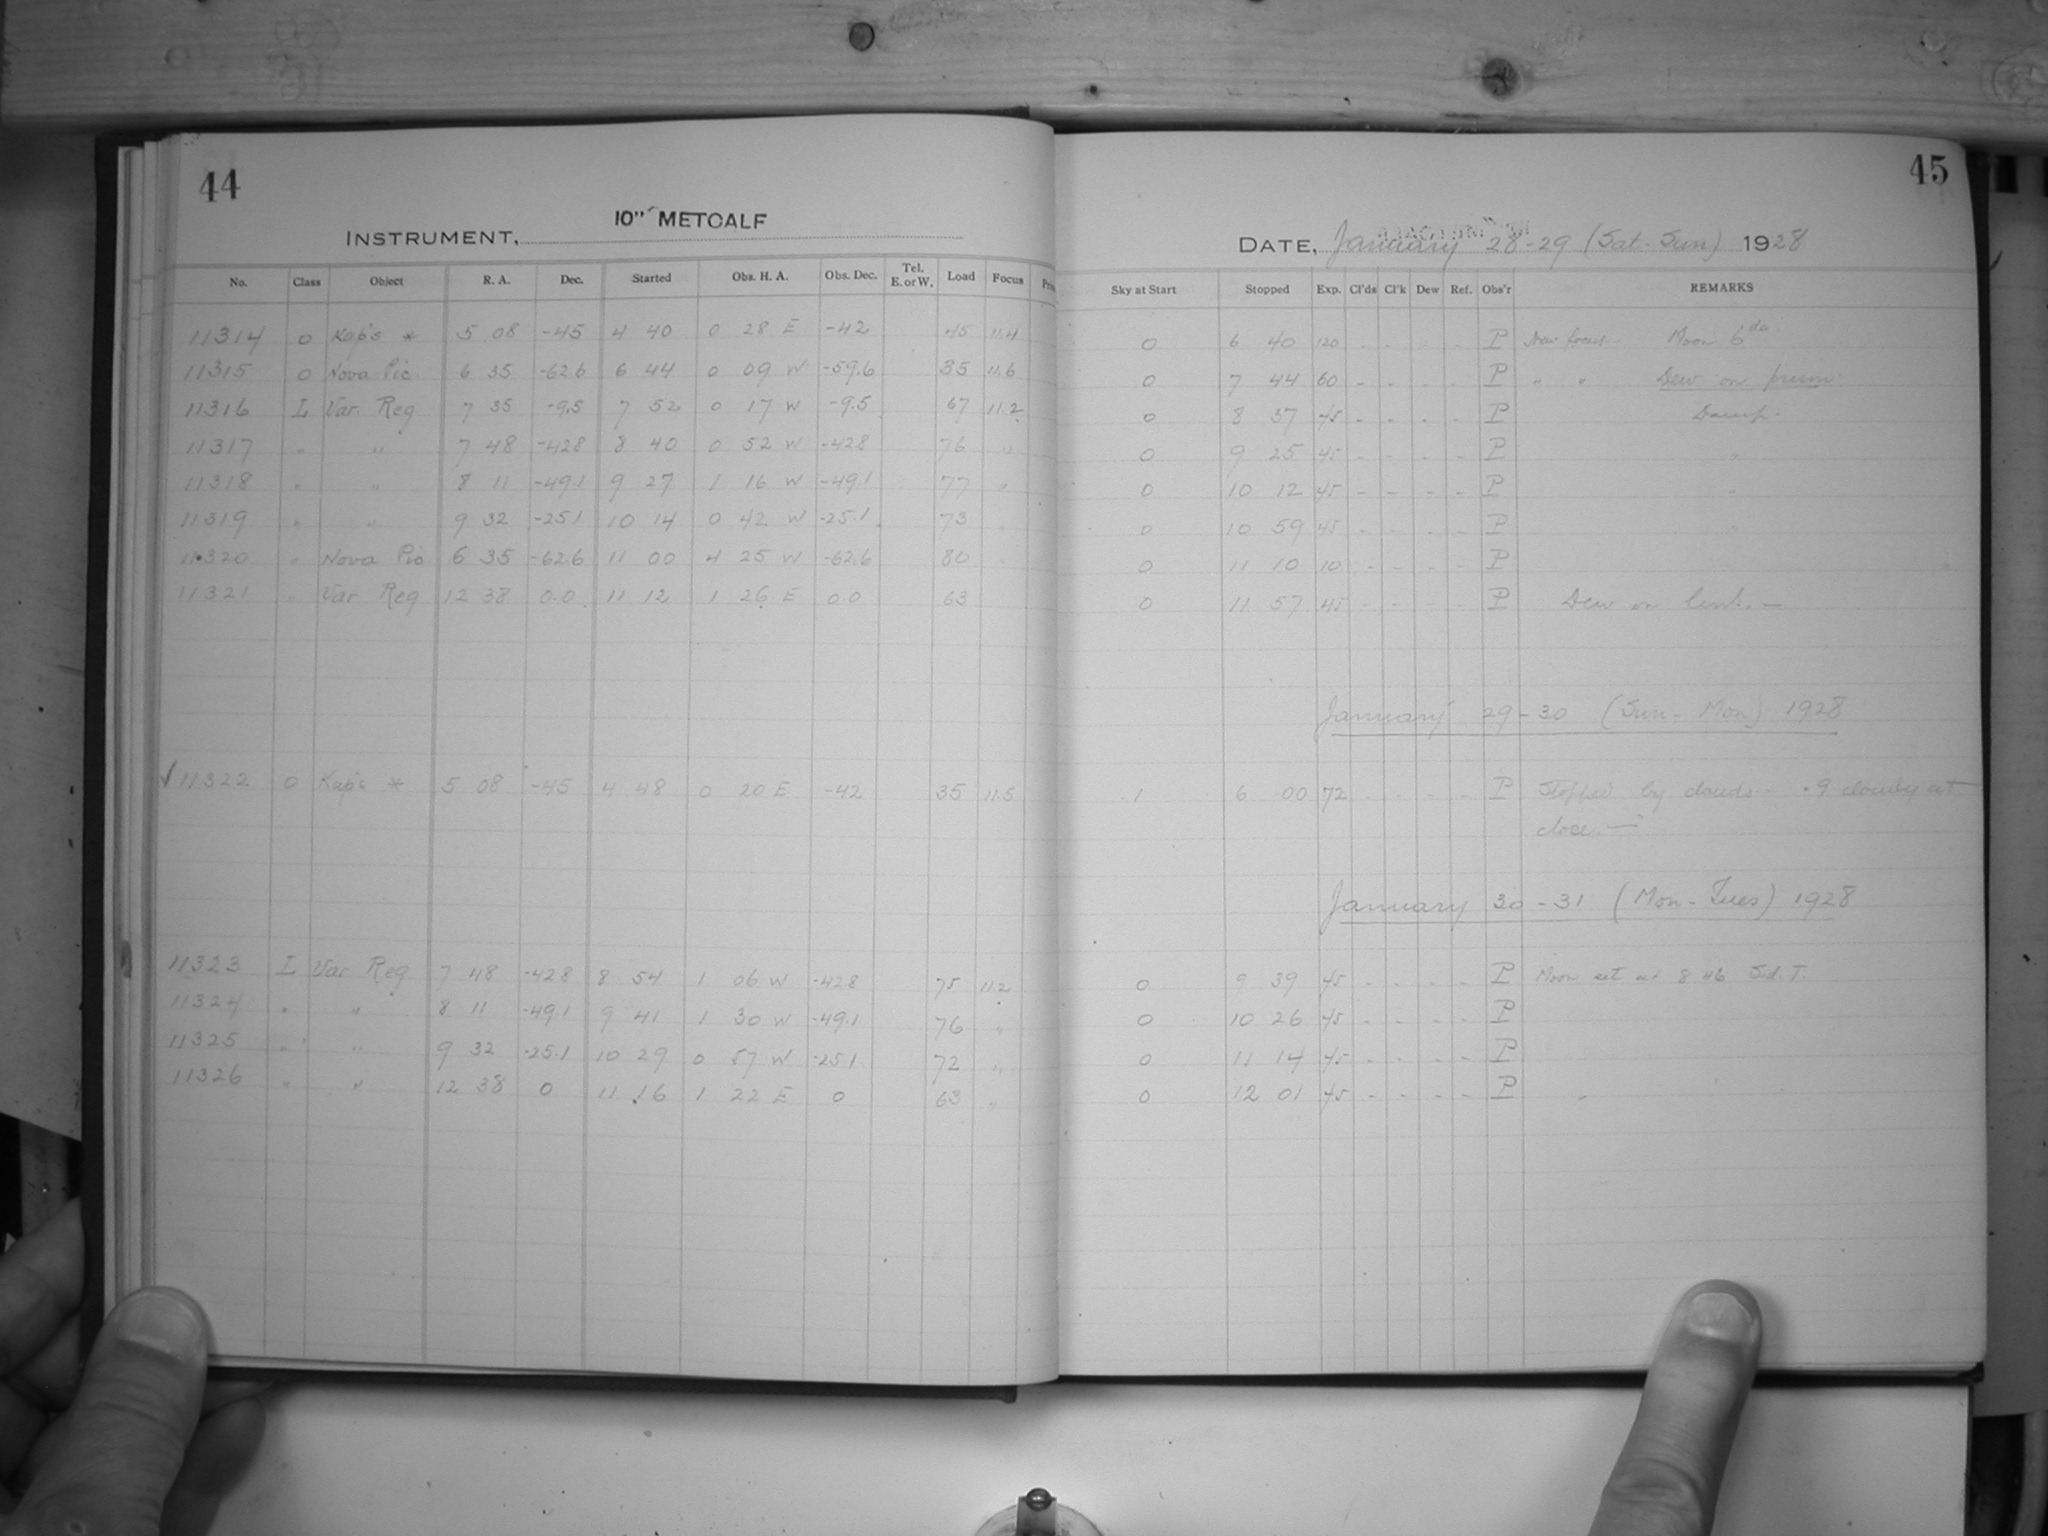 44
INSTRUMENT, 10" METCALF
No. Class Object R. A. Dec. Started Obs. H. A. Obs. Dec. Tel. E. or W. Load Focus
11314 O Kap's * 5 08 -45 4 40 0 28 E -42 45 11.4
11315 O Nova Pic. 6 35 -62.6 6 44 0 09 W -59.6 35 11.6
11316 I Var. Reg 7 35 -9.5 7 52 0 17 W -9.5 67 11.2
11317 " " 7 48 -42.8 8 40 0 52 W -42.8 76 "
11318 " " 8 11 -49.1 9 27 1 16 W -49.1 77 "
11319 " " 9 32 -25.1 10 14 0 42 W -25.1 73
11320 " Nova Pic 6 35 -62.6 11 00 4 25 W -62.6 80
11321 " Var Reg 12 38 0.0 11 12 1 26 E 0.0 63
√ 11322 O Kap's * 5 08 -45 4 48 0 20 E -42 35 11.5
11323 I Var Reg 7 48 -42.8 8 54 1 06 W -42.8 75 11.2
11324 " " 8 11 -49.1 9 41 1 30 W -49.1 76 "
11325 " " 9 32 -25.1 10 29 0 57 W -25.1 72 "
11326 " " 12 38 0 11 16 1 22 E 0 63 "
45
DATE, January 28-29 (Sat-Sun) 1928
Sky at Start Stopped Exp. Cl'ds Cl'k Dew Ref. Obs'r REMARKS
0 6 40 120 - - - - P New focus - Moon 6 da.
0 7 44 60 - - - - P " " Dew on prism.
0 8 37 45 - - - - P Damp.
0 9 25 45 - - - - P "
0 10 12 45 - - - - P "
0 10 59 45 - - - - P "
0 11 10 10 - - - - P
0 11 57 45 - - - - P Dew on lens. —
January 29-30 (Sun-Mon) 1928
.1 6 00 72 - - - - P Stopped by clouds - .9 cloudy at
close. —
January 30-31 (Mon-Tues) 1928
0 9 39 45 - - - - P Moon set at 8 46 Sid. T.
0 10 26 45 - - - - P
0 11 14 45 - - - - P
0 12 01 45 - - - - P